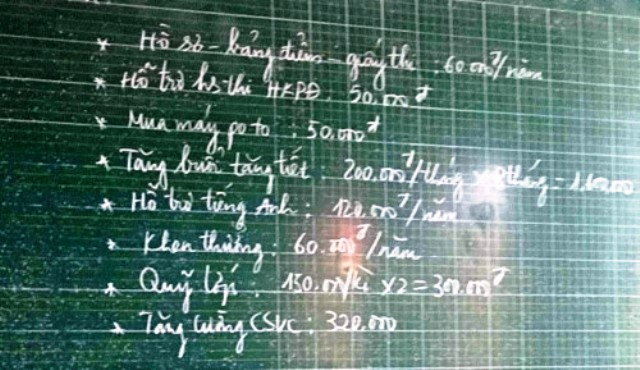 * Hồ sơ - bảng điểm - giấy thi : 60.000đ/năm
* Hỗ trợ hs thi HKPĐ : 50.000đ
* Mua máy poto : 50.000đ
* Tăng buổi tăng tiết : 200.000đ/tháng
* Hỗ trợ tiếng Anh : 120.000đ/năm
* Khen thưởng : 60.000đ/năm
* Quỹ lớp : 150.000/kì x2 = 300.000đ
* Tăng cường CSVC : 320.000